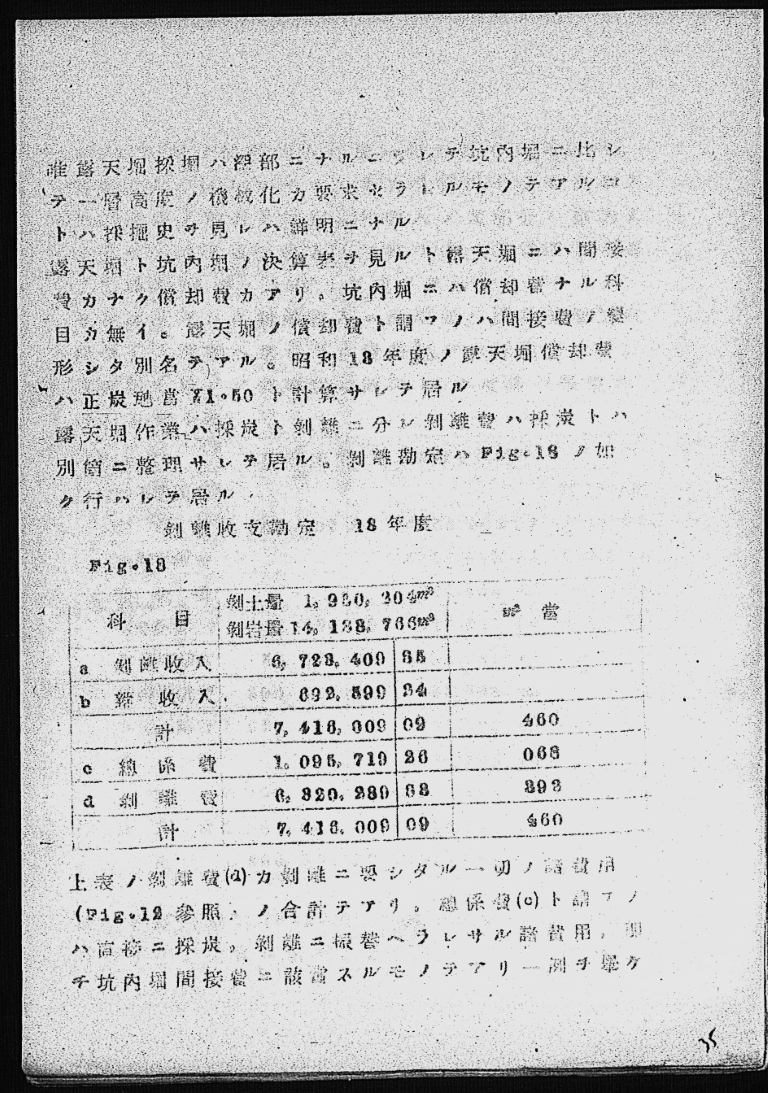 唯露天堀採堀ハ深部ニナルニツレテ坑内堀ニ比シ
テ一層高度ノ機械化カ要求セラレルモノテアルコ
トハ採堀史ヲ見レハ鮮明ニナル
露天堀ト坑内堀ノ決算表ヲ見ルト露天堀ニハ間接
費カナク償却費カアリ。坑内堀ニハ償却費ナル科
目カ無イ。露天堀ノ償却費ト謂フノハ間接費ノ變
形シタ別名テアル。昭和18年度ノ露天堀償却費
ハ正炭瓲當 ¥1.50 ト計算サレテ居ル
露天堀作業ハ採炭ト剝離ニ分レ剝離費ハ採炭トハ
別箇ニ整理サレテ居ル。剝離勘定ハ Fig.18 ノ如
ク行ハレテ居ル.
剝離收支勘定 18年度
Fig.18
科 目 剝土量 1,950,304m³ m³ 當
剝岩量 14,138,766m³
a 剝離收入 6,723,409 85
b 雜收入 692,599 24
計 7,416,009 09 460
c 總係費 1,095,719 26 068
d 剝離費 6,320,289 83 392
計 7,416,009 09 460
上表ノ剝離費(d)カ剝離ニ要シタル一切ノ諸費用
(Fig.12 參照)ノ合計テアリ。總係費(c)ト謂フノ
ハ直接ニ採炭。剝離ニ振替ヘラレサル諸費用。卽
チ坑內堀間接費ニ該當スルモノテアリ一例ヲ擧ケ
35